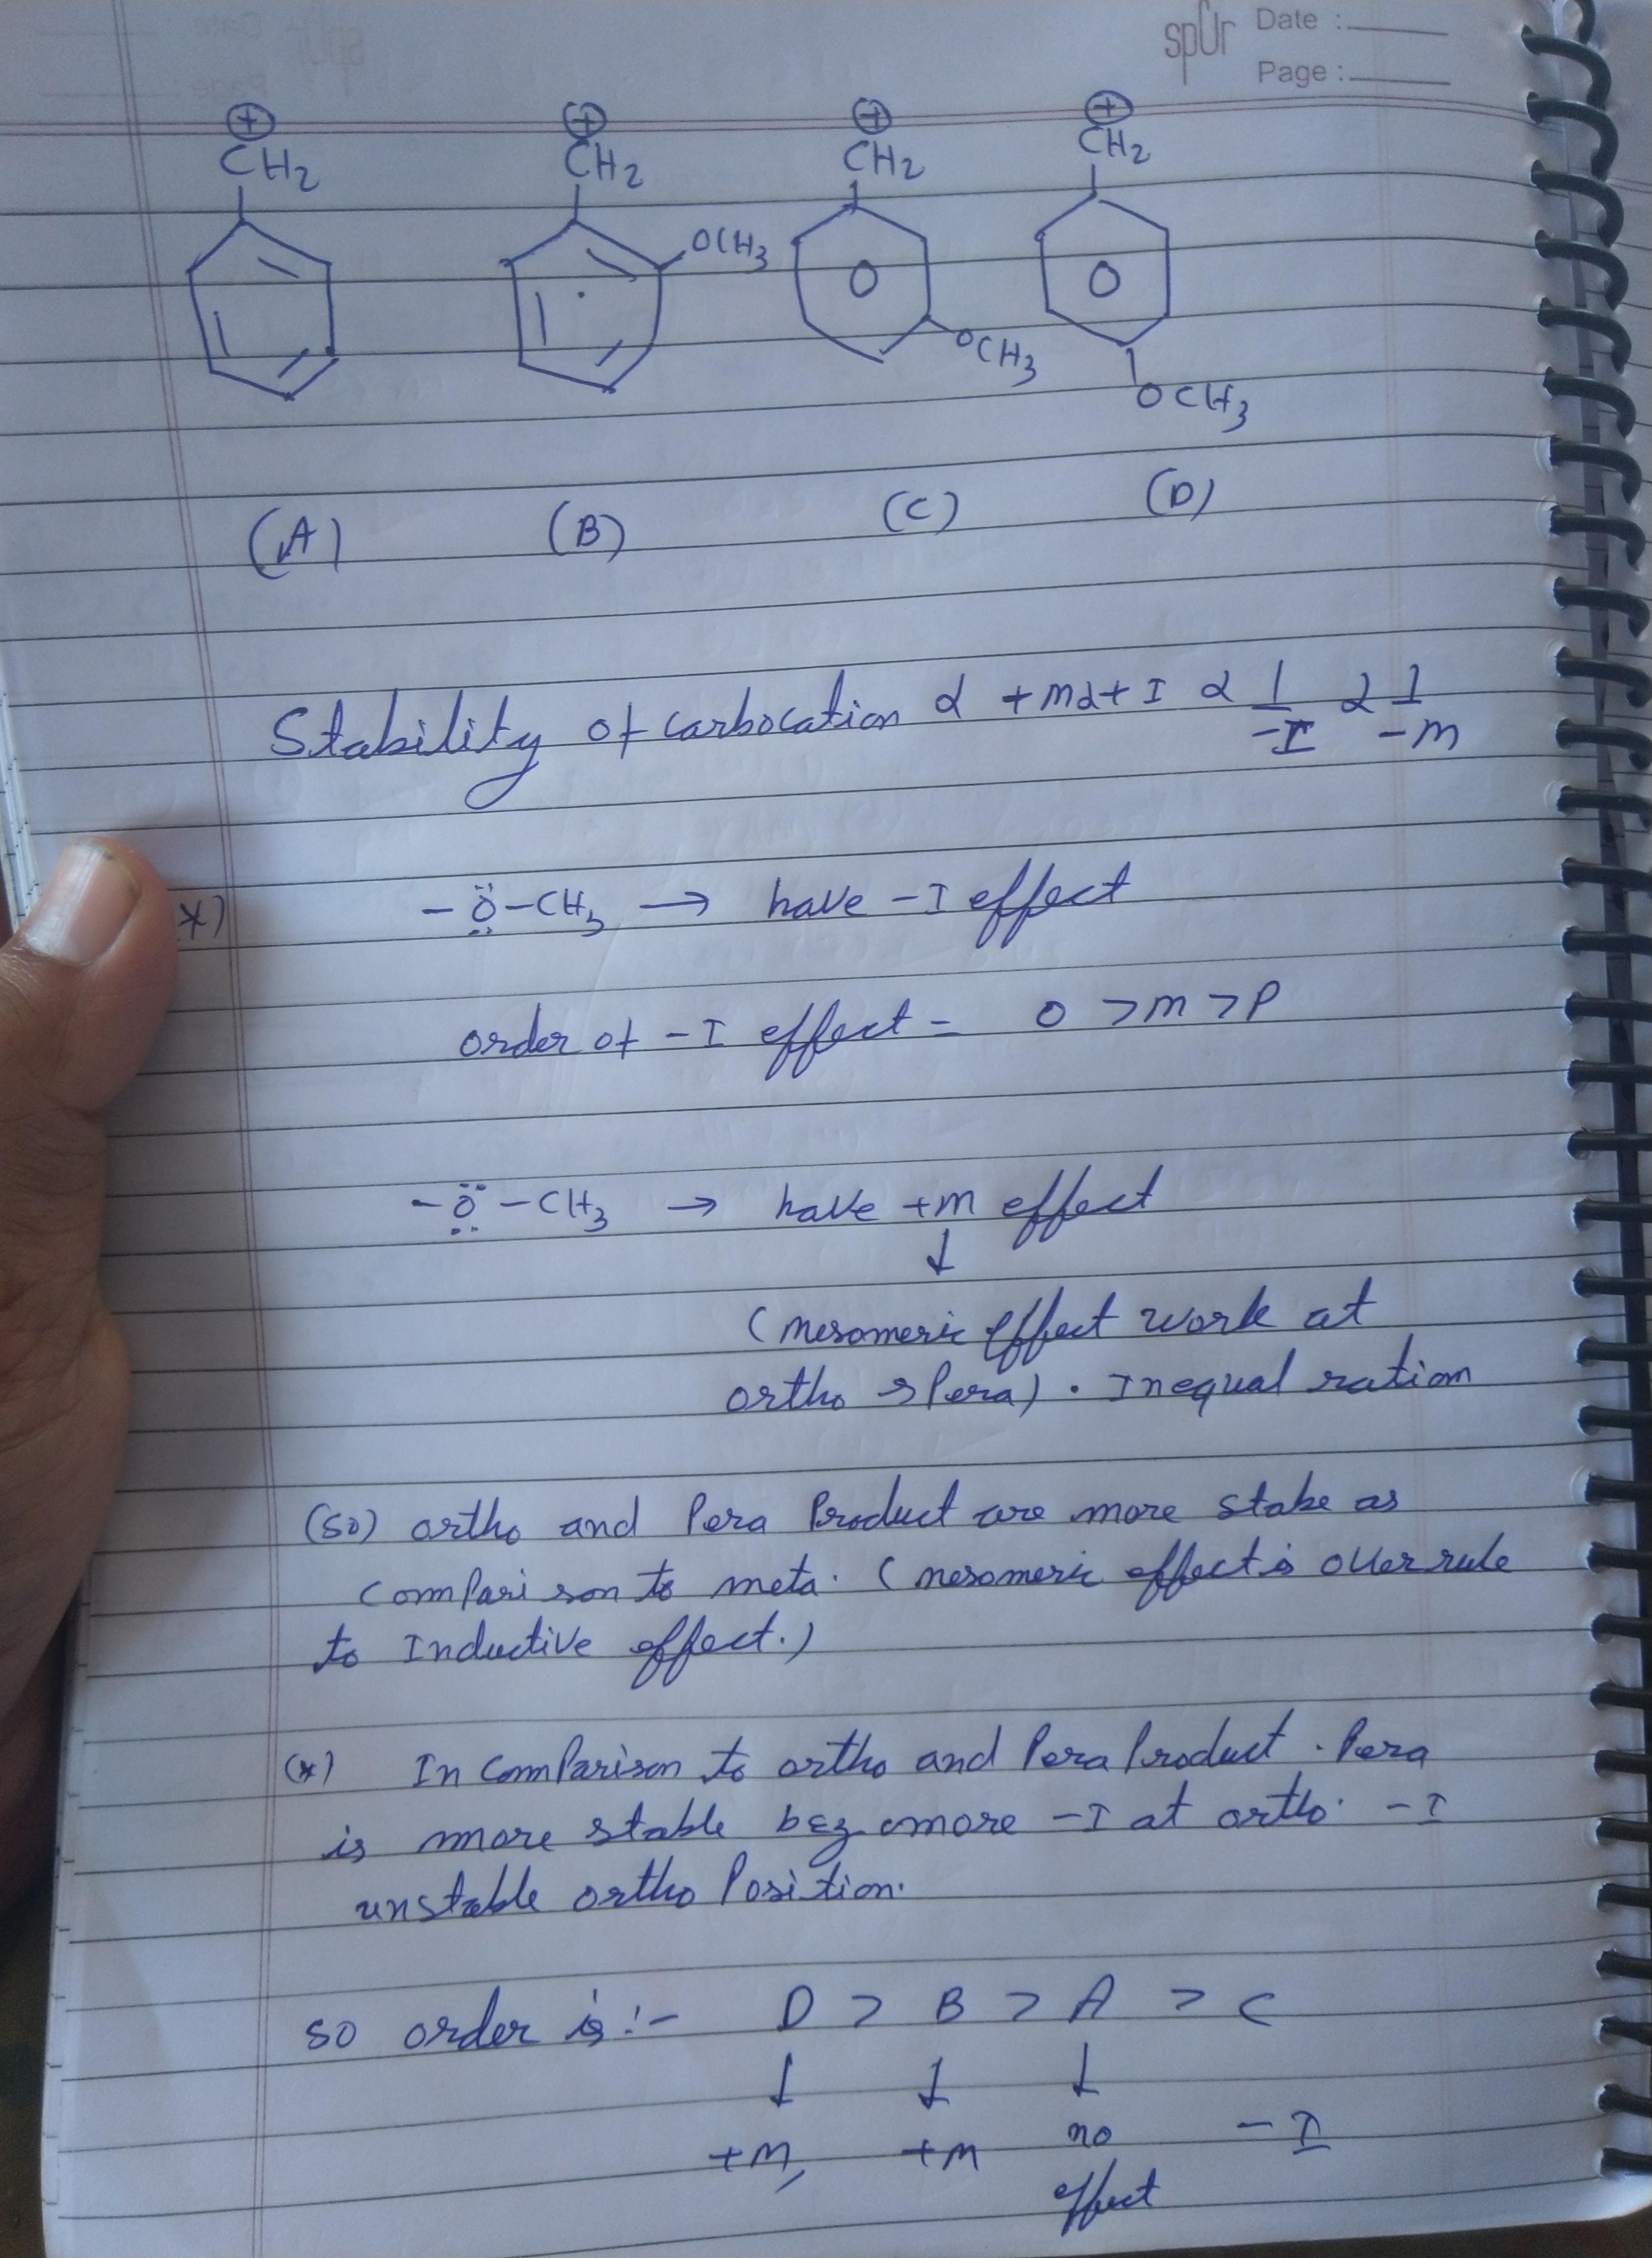 spUr Date :
Page :
⊕ ⊕ ⊕ ⊕
CH2 CH2 CH2 CH2
OCH3
OCH3
OCH3
(A) (B) (C) (D)
Stability of carbocation α +m α + I α 1/-I α 1/-m
*) -Ö-CH3 → have -I effect
order of -I effect = o >m >p
-Ö-CH3 → have +m effect
↓
(mesomeric effect work at
ortho & Pera) . Inequal ration
(so) ortho and Pera Product are more stabe as
comparison to meta. (mesomeric effect is overrule
to Inductive effect.)
(*) In comParison to ortho and Pera Product . Pera
is more stable bcz more -I at ortho. -I
unstable ortho Position.
so order is :- D > B > A > C
↓ ↓ ↓
+M, +M no -I
effect